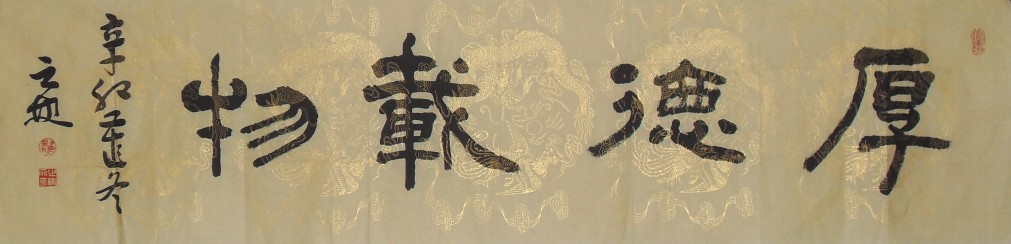 厚德載物
辛卯
冬